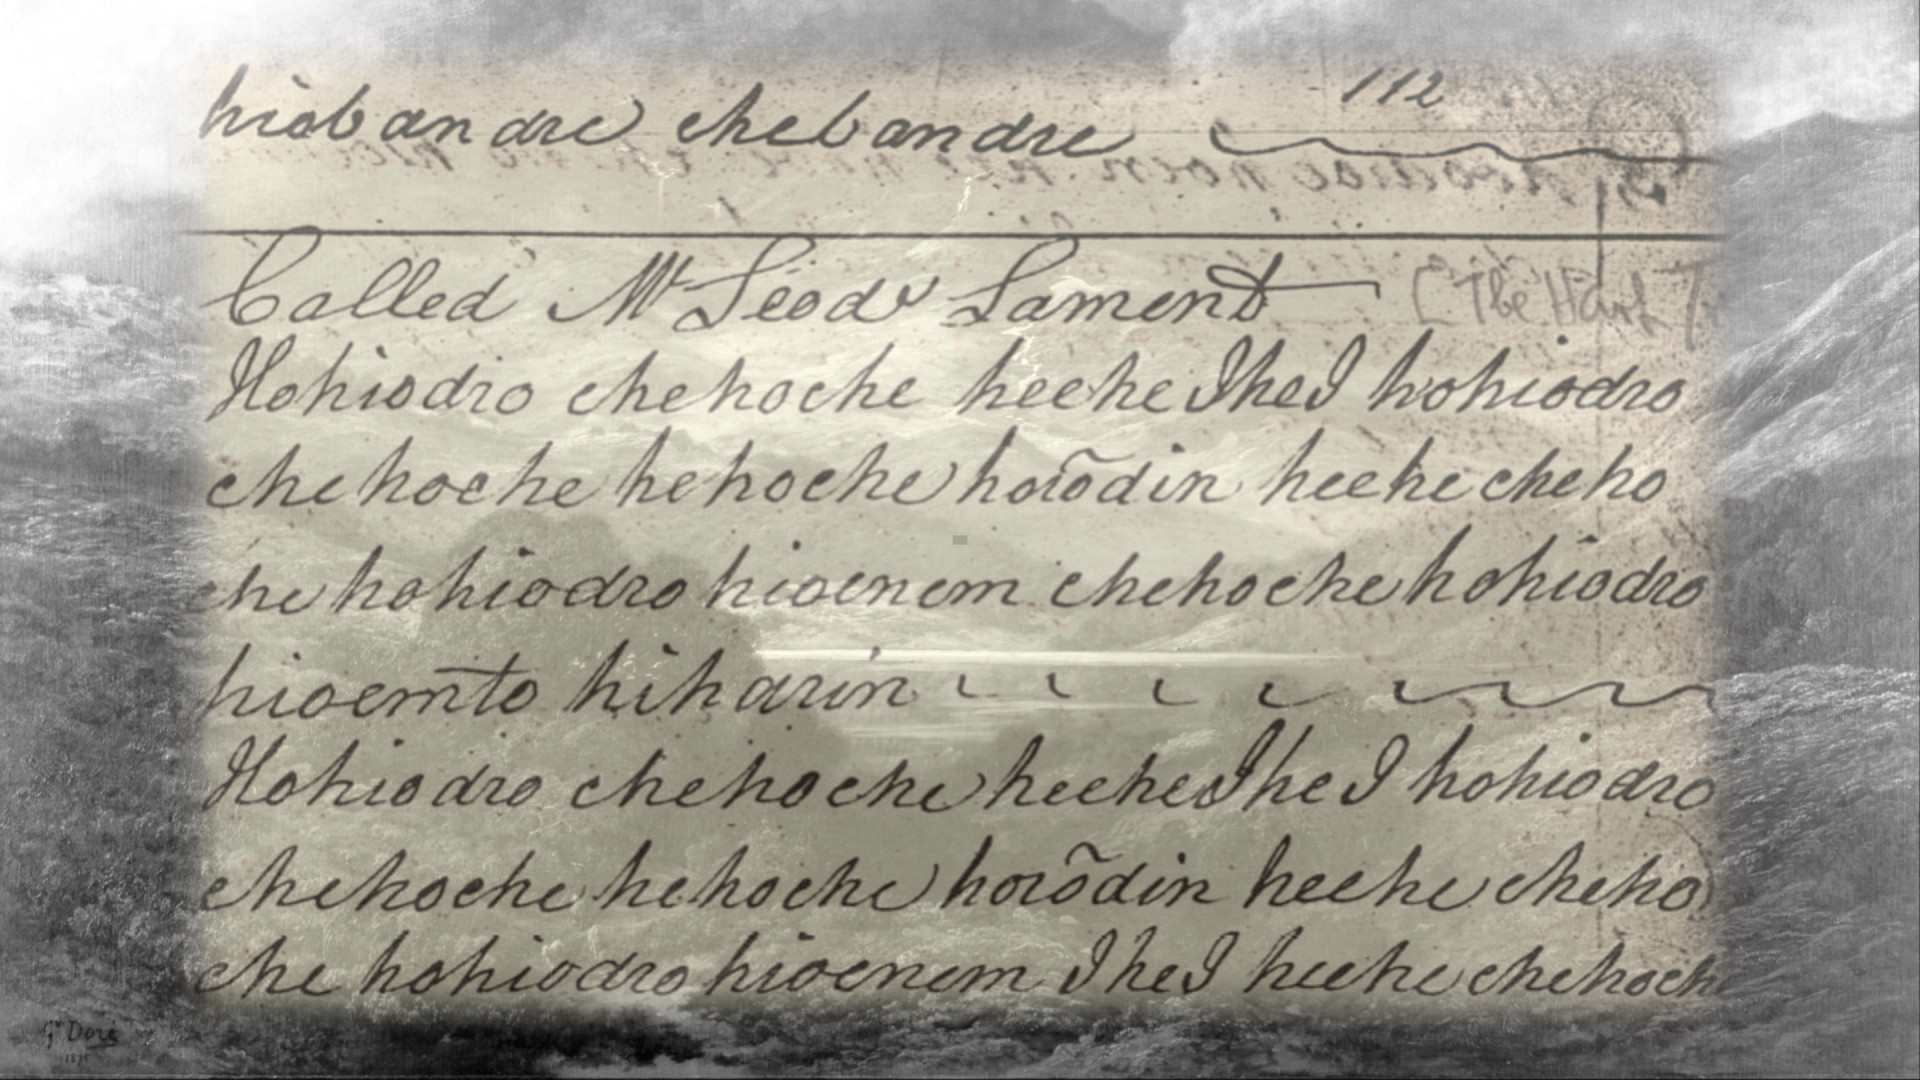 112
hiobandre chebandre
Called McLeods Lament [The Harp
Hohiodro chehoche heeheIheI hohiodro
chehoche hehoche horodin heehecheho
che hohiodro hioenem chehoche hohiodro
hioemto hiharin
Hohiodro chehoche heeheIheI hohiodro
chehoche hehoche horodin heehe cheho
che hohiodro hioenem IheI heehe chehoch
G Doré